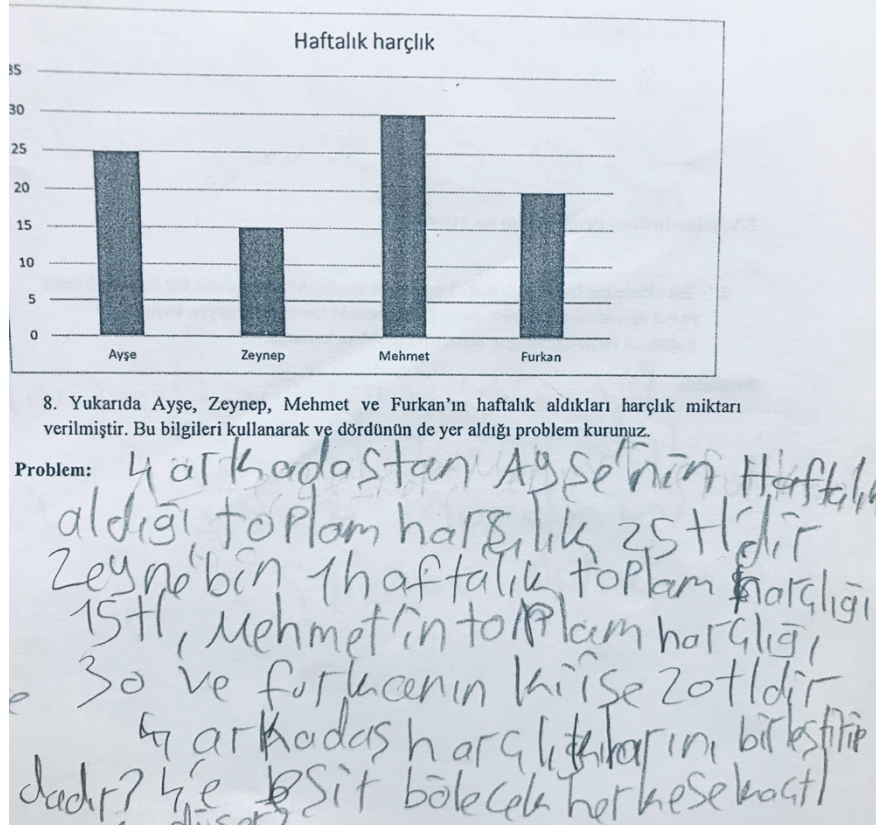 Haftalık harçlık
35
30
25
20
15
10
5
0
Ayşe Zeynep Mehmet Furkan
8. Yukarıda Ayşe, Zeynep, Mehmet ve Furkan'ın haftalık aldıkları harçlık miktarı
verilmiştir. Bu bilgileri kullanarak ve dördünün de yer aldığı problem kurunuz.
Problem: 4 arkadaştan Ayşe'nin Haftalık
aldığı toplam harçlık 25tl'dir
Zeyne'bin 1 haftalık toplam harçlığı
15tl, Mehmet'in toplam harçlığı,
30 ve furkanın ki ise 20tldir
4 arkadaş harçlıklarını birleştitip
dadır? 4'e eşit bölecek herkese kaçtl
düşer?